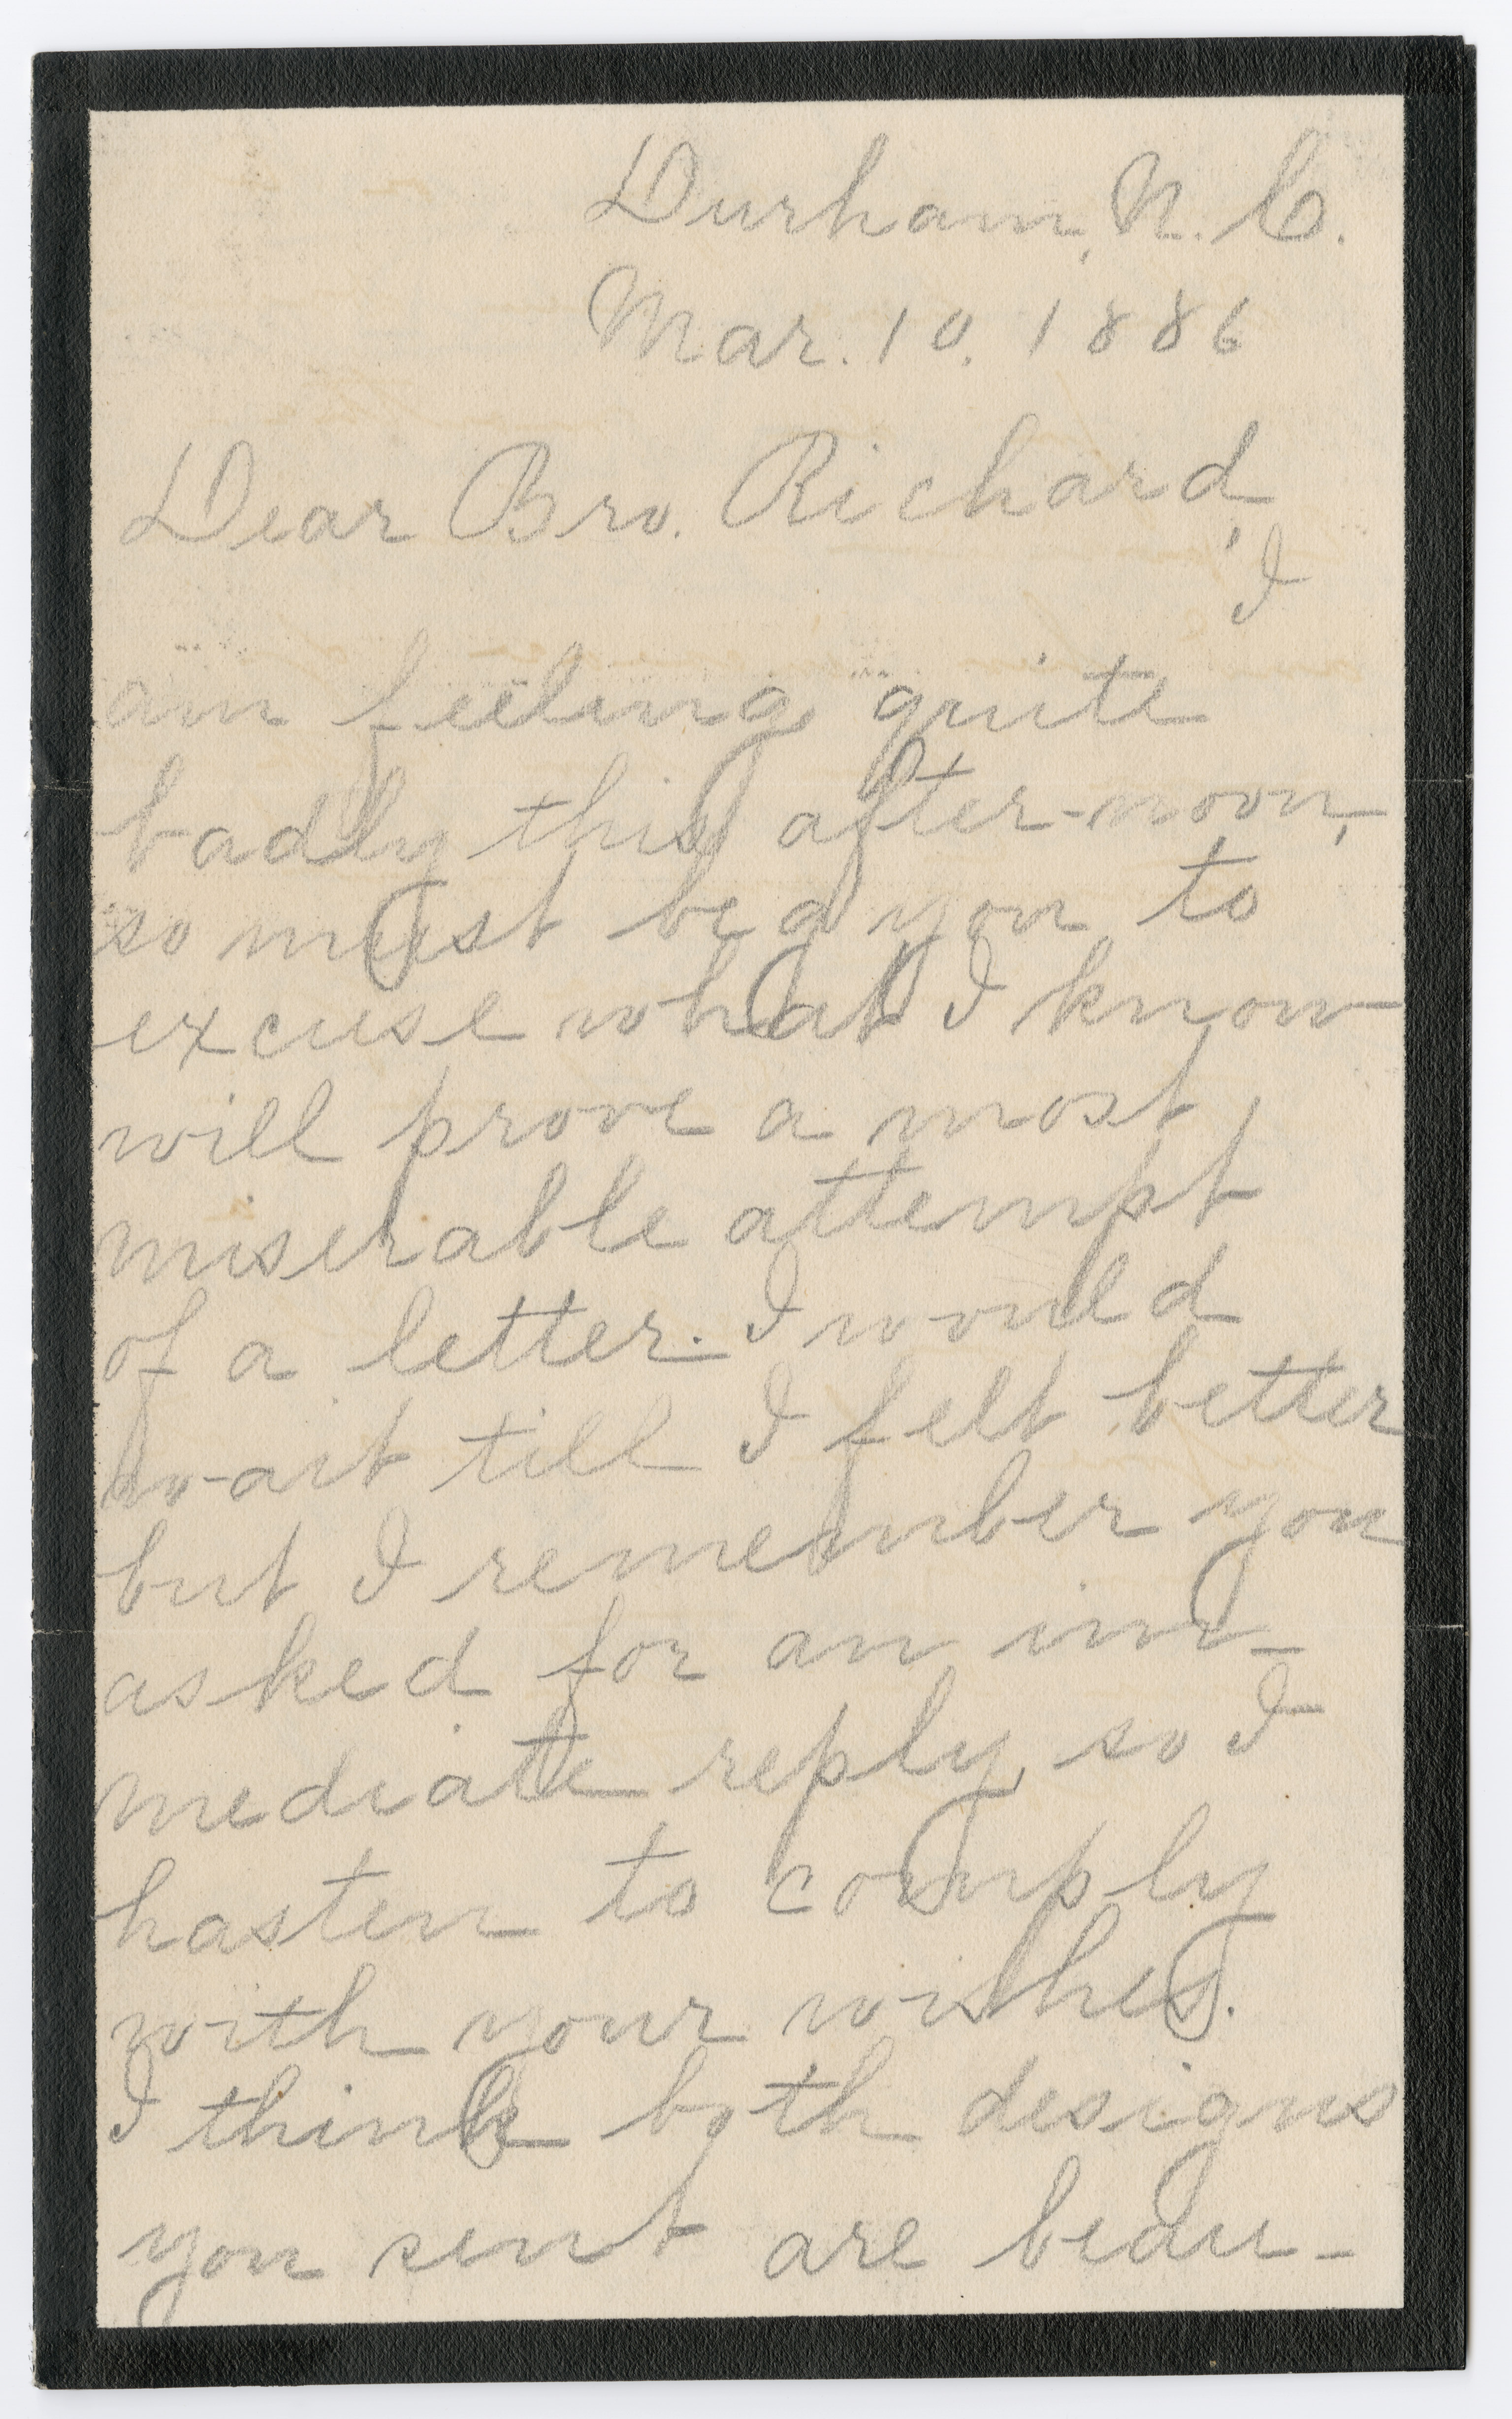 Durham, N. C.
Mar. 10. 1886
Dear Bro. Richard,
I
am feeling quite
badly this after-noon,
so must beg you to
excuse what I know
will prove a most
miserable attempt
of a letter. I would
wait till I felt better
but I remember you
asked for an im-
mediate reply, so I
hasten to comply
with your wishes.
I think both designs
you sent are beau-